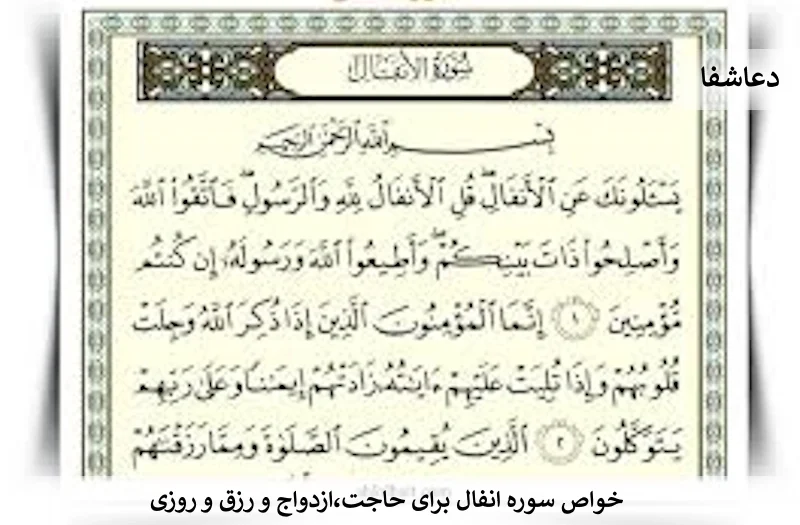 سُورَةُ الأَنفَالِ
دعاشفا
بِسْمِ ٱللَّهِ ٱلرَّحْمَٰنِ ٱلرَّحِيمِ
يَسْـَٔلُونَكَ عَنِ ٱلْأَنفَالِۖ قُلِ ٱلْأَنفَالُ لِلَّهِ وَٱلرَّسُولِۖ فَٱتَّقُوا۟ ٱللَّهَ
وَأَصْلِحُوا۟ ذَاتَ بَيْنِكُمْۖ وَأَطِيعُوا۟ ٱللَّهَ وَرَسُولَهُۥٓ إِن كُنتُم
مُّؤْمِنِينَ ١ إِنَّمَا ٱلْمُؤْمِنُونَ ٱلَّذِينَ إِذَا ذُكِرَ ٱللَّهُ وَجِلَتْ
قُلُوبُهُمْ وَإِذَا تُلِيَتْ عَلَيْهِمْ ءَايَٰتُهُۥ زَادَتْهُمْ إِيمَٰنًا وَعَلَىٰ رَبِّهِمْ
يَتَوَكَّلُونَ ٢ ٱلَّذِينَ يُقِيمُونَ ٱلصَّلَوٰةَ وَمِمَّا رَزَقْنَٰهُمْ
خواص سوره انفال برای حاجت،ازدواج و رزق و روزی